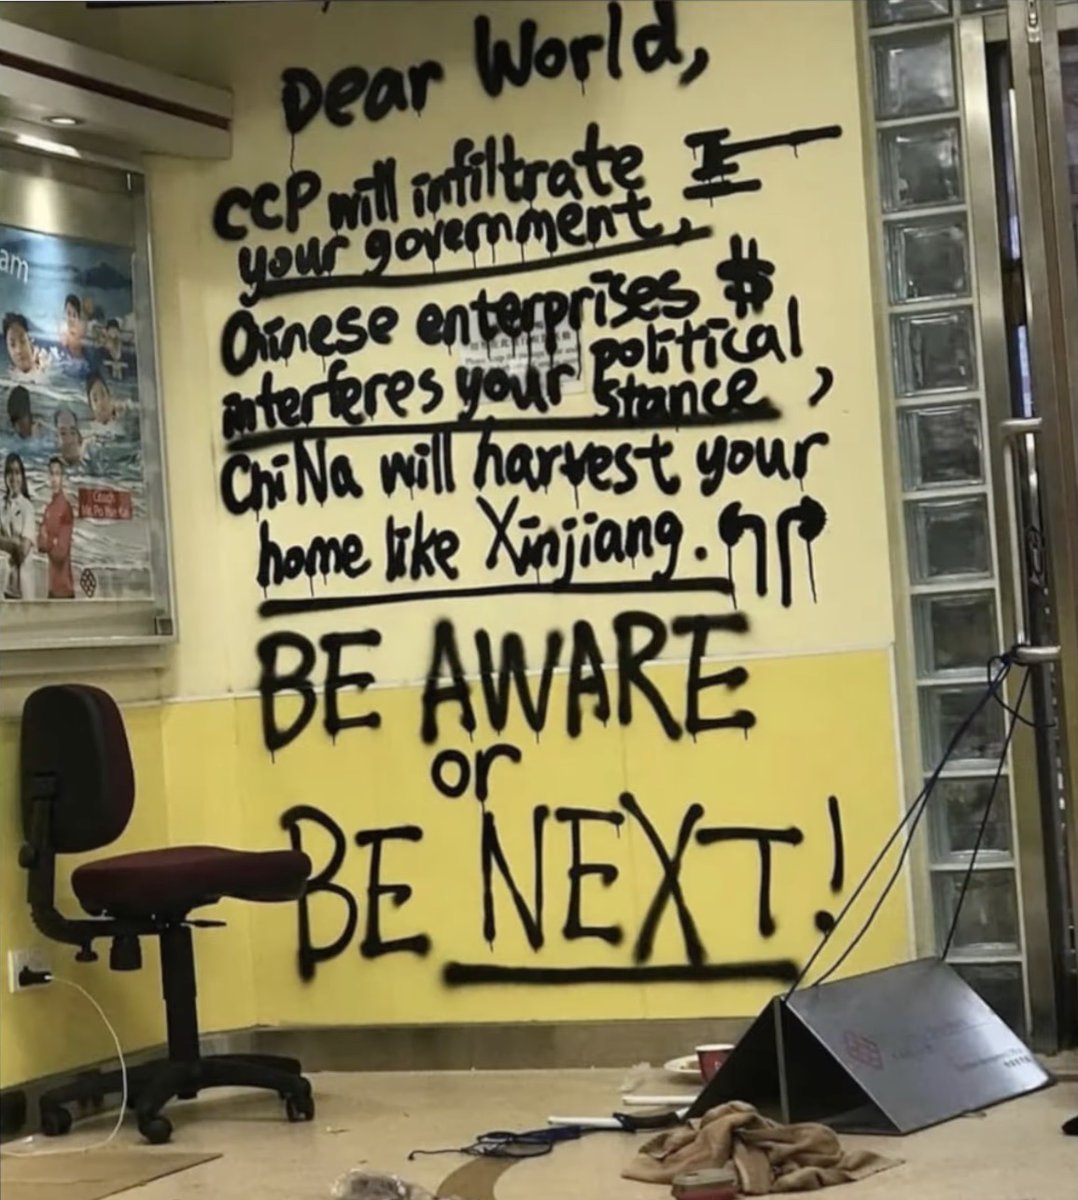 Dear World,
CCP will infiltrate
your government,
Chinese enterprises $
interferes your political
stance,
ChiNa will harvest your
home like Xinjiang.
BE AWARE
or
BE NEXT!
am